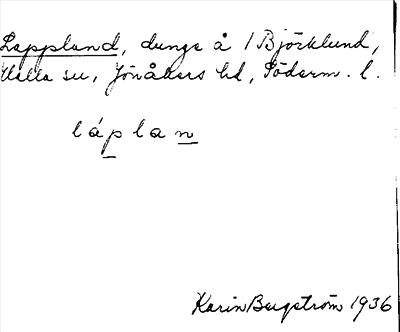 Lappland, dunge å 1 Björklund,
Halla sn, Jönåkers hd, Söderm. l.
láplan
Karin Bergström 1936